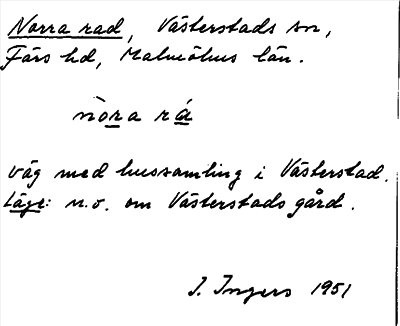 Norra rad, Västerstads sn,
Färs hd, Malmöhus län.
nòra rá
väg med hussamling i Västerstad.
Läge: n.o. om Västerstads gård.
I. Ingers 1951